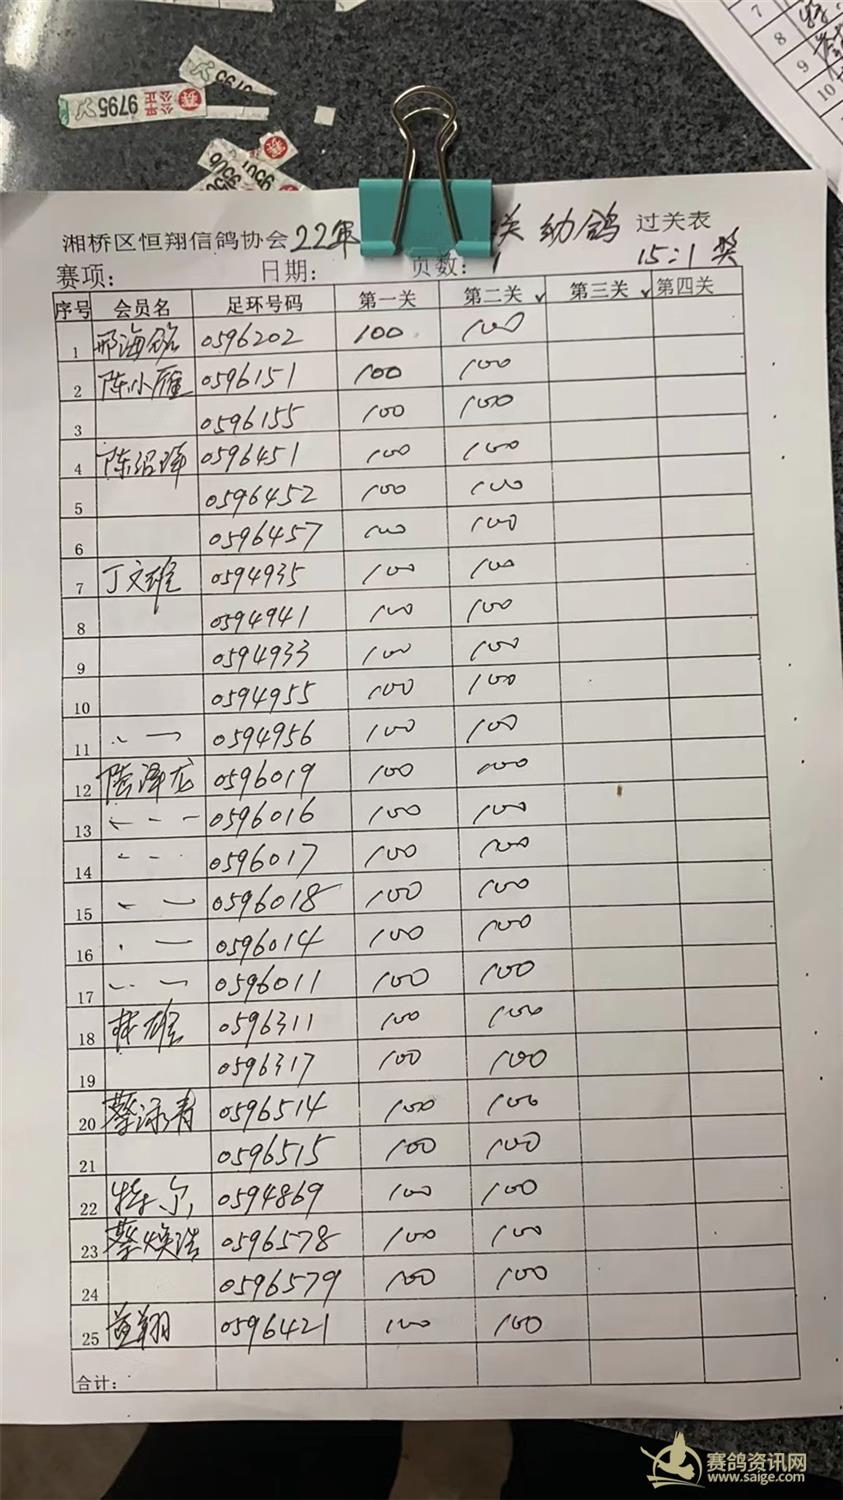 7
8
9
10
9795 公平公正 赛
9506
湘桥区恒翔信鸽协会 22年 关 幼鸽 过关表
赛项: 日期: 页数: 1 15:1 奖
序号 会员名 足环号码 第一关 第二关 第三关 第四关
1 邢海铭 0596202 100 100
2 陈小雁 0596151 100 100
3 0596155 100 100
4 陈绍 0596451 100 100
5 0596452 100 100
6 0596457 100 100
7 丁文雄 0594935 100 100
8 0594941 100 100
9 0594933 100 100
10 0594955 100 100
11 0594956 100 100
12 陈泽龙 0596019 100 100
13 0596016 100 100
14 0596017 100 100
15 0596018 100 100
16 0596014 100 100
17 0596011 100 100
18 林雄 0596311 100 100
19 0596317 100 100
20 蔡泳青 0596514 100 100
21 0596515 100 100
22 0594869 100 100
23 蔡焕浩 0596578 100 100
24 0596579 100 100
25 翔 0596421 100 100
合计:
赛鸽资讯网
www.saige.com